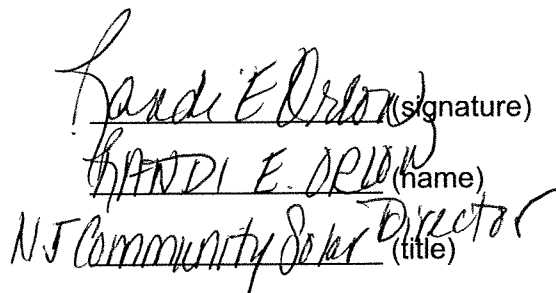 Randi E Orlow (signature)
RANDI E. ORLOW (name)
NJ Community Solar Director (title)